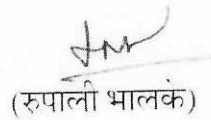 (रुपाली भालके)